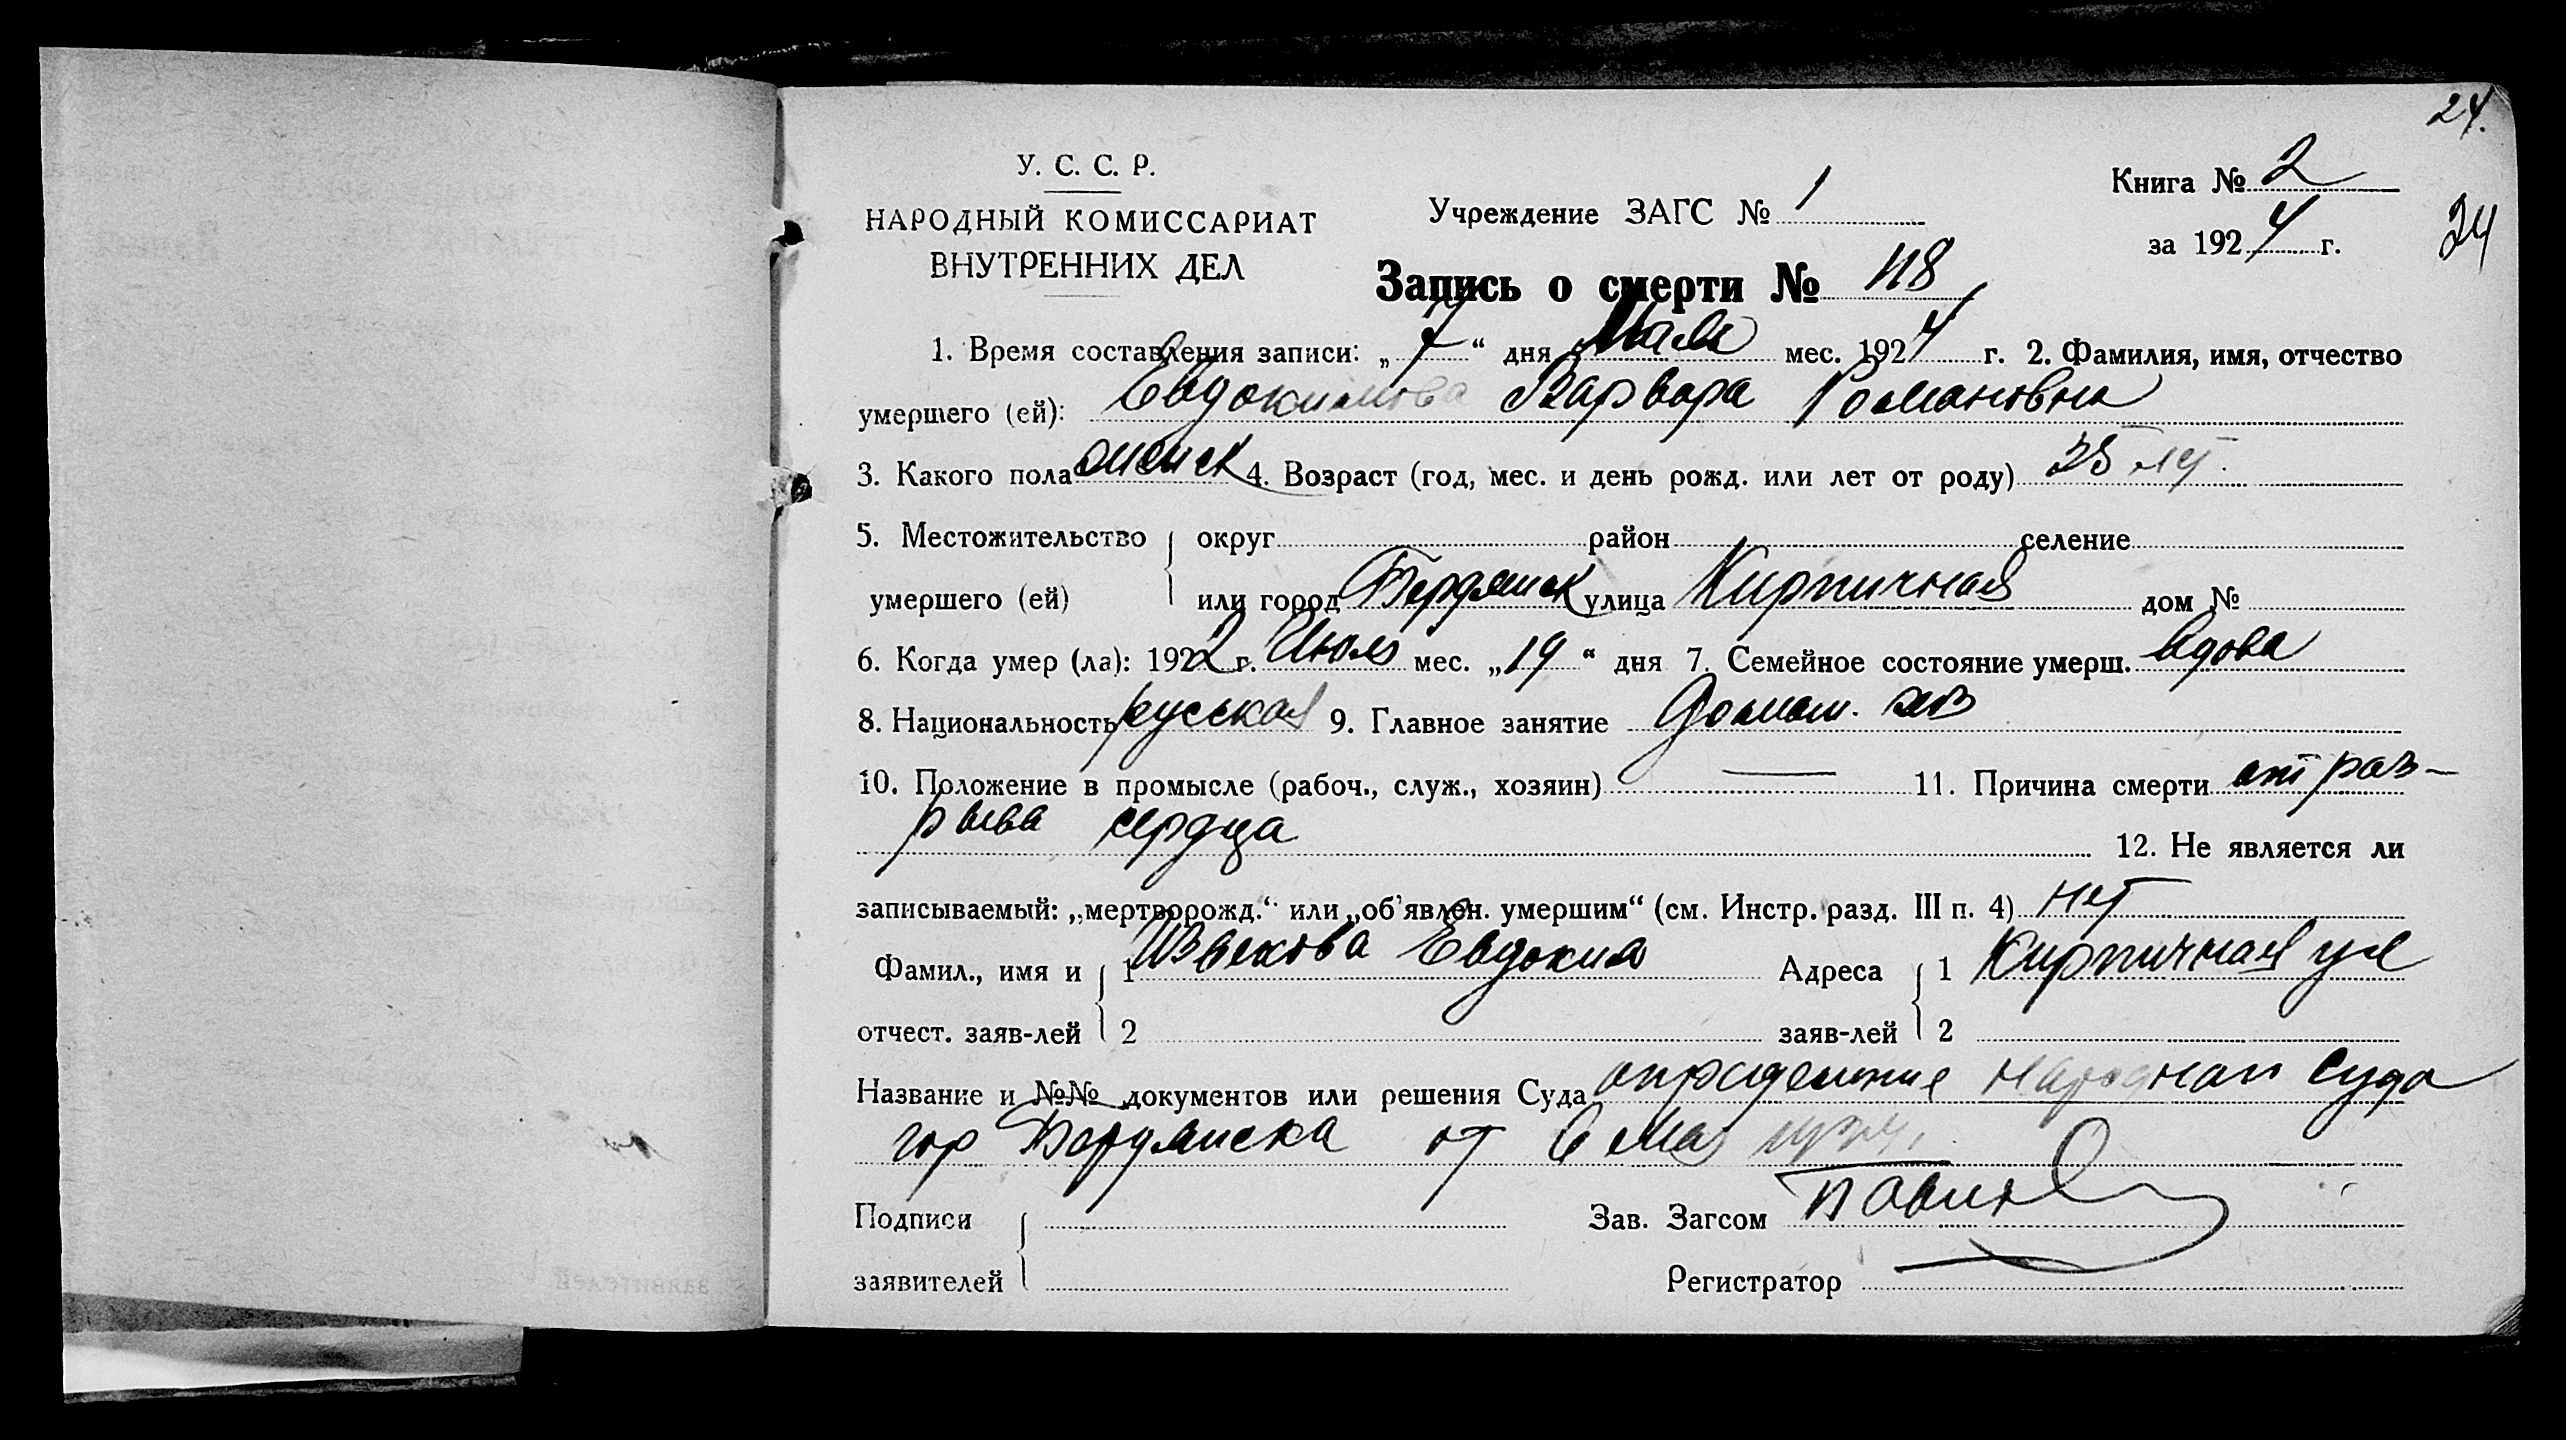 24.
У. С. С. Р.
НАРОДНЫЙ КОМИССАРИАТ
ВНУТРЕННИХ ДЕЛ
Учреждение ЗАГС № 1
Книга № 2
за 1924 г.
24
Запись о смерти № 118
1. Время составления записи: „7“ дня Мая мес. 1924 г. 2. Фамилия, имя, отчество
умершего (ей): Евдокимова Варвара Романовна
3. Какого пола женск 4. Возраст (год, мес. и день рожд. или лет от роду) 35 лет.
5. Местожительство округ район селение
умершего (ей) или город Бердянск улица Кирпичная дом №
6. Когда умер (ла): 1922 г. Июля мес. „19“ дня 7. Семейное состояние умерш. вдова
8. Национальность русская 9. Главное занятие Домаш. хоз
10. Положение в промысле (рабоч., служ., хозяин) — 11. Причина смерти от раз-
рыва сердца 12. Не является ли
записываемый: „мертворожд.“ или „об'явлен. умершим“ (см. Инстр. разд. III п. 4) нет
Фамил., имя и 1 Извекова Евдокия Адреса 1 Кирпичная ул
отчест. заяв-лей 2 заяв-лей 2
Название и №№ документов или решения Суда определение народнаго Суда
гор Бердянска от 6 мая
Подписи Зав. Загсом
заявителей Регистратор